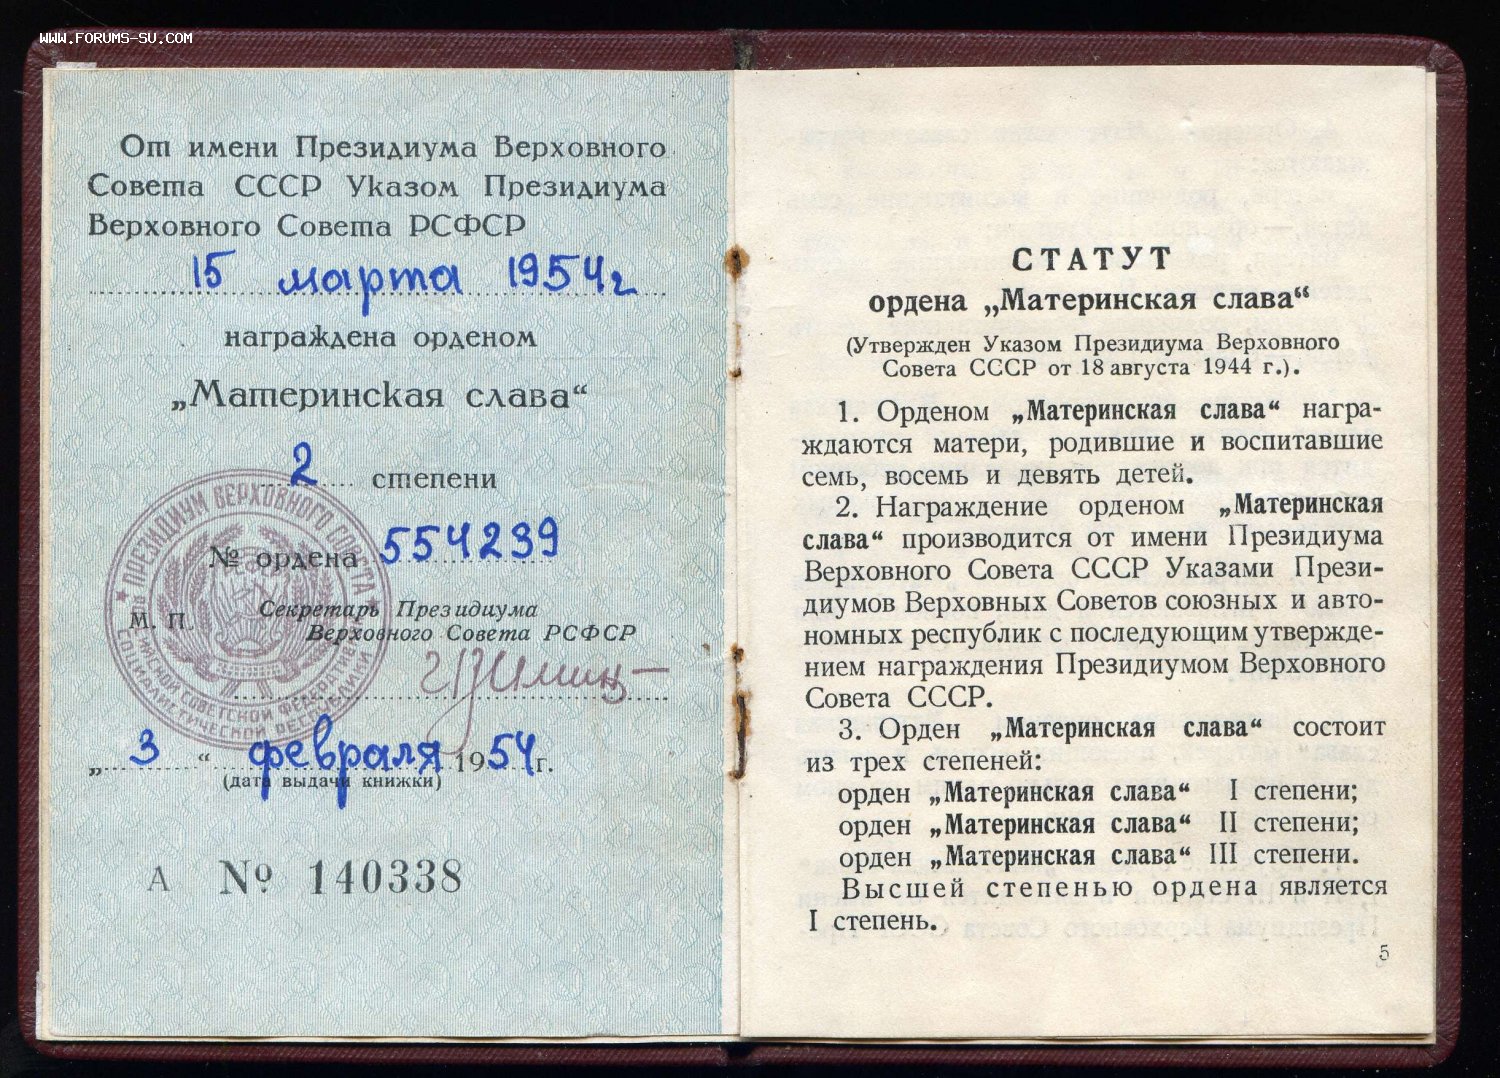 WWW.FORUMS-SU.COM
От имени Президиума Верховного
Совета СССР Указом Президиума
Верховного Совета РСФСР
15 марта 1954 г
награждена орденом
„Материнская слава“
2 степени
№ ордена 554239
М. П.
Секретарь Президиума
Верховного Совета РСФСР
„ 3 “ февраля 1954 г.
(дата выдачи книжки)
А № 140338
ПРЕЗИДИУМ ВЕРХОВНОГО СОВЕТА
СОВЕТСКОЙ ФЕДЕРАТИВНОЙ
СОЦИАЛИСТИЧЕСКОЙ РЕСПУБЛИКИ
СТАТУТ
ордена „Материнская слава“
(Утвержден Указом Президиума Верховного
Совета СССР от 18 августа 1944 г.).
1. Орденом „Материнская слава“ награ-
ждаются матери, родившие и воспитавшие
семь, восемь и девять детей.
2. Награждение орденом „Материнская
слава“ производится от имени Президиума
Верховного Совета СССР Указами Прези-
диумов Верховных Советов союзных и авто-
номных республик с последующим утвержде-
нием награждения Президиумом Верховного
Совета СССР.
3. Орден „Материнская слава“ состоит
из трех степеней:
орден „Материнская слава“ I степени;
орден „Материнская слава“ II степени;
орден „Материнская слава“ III степени.
Высшей степенью ордена является
I степень.
5